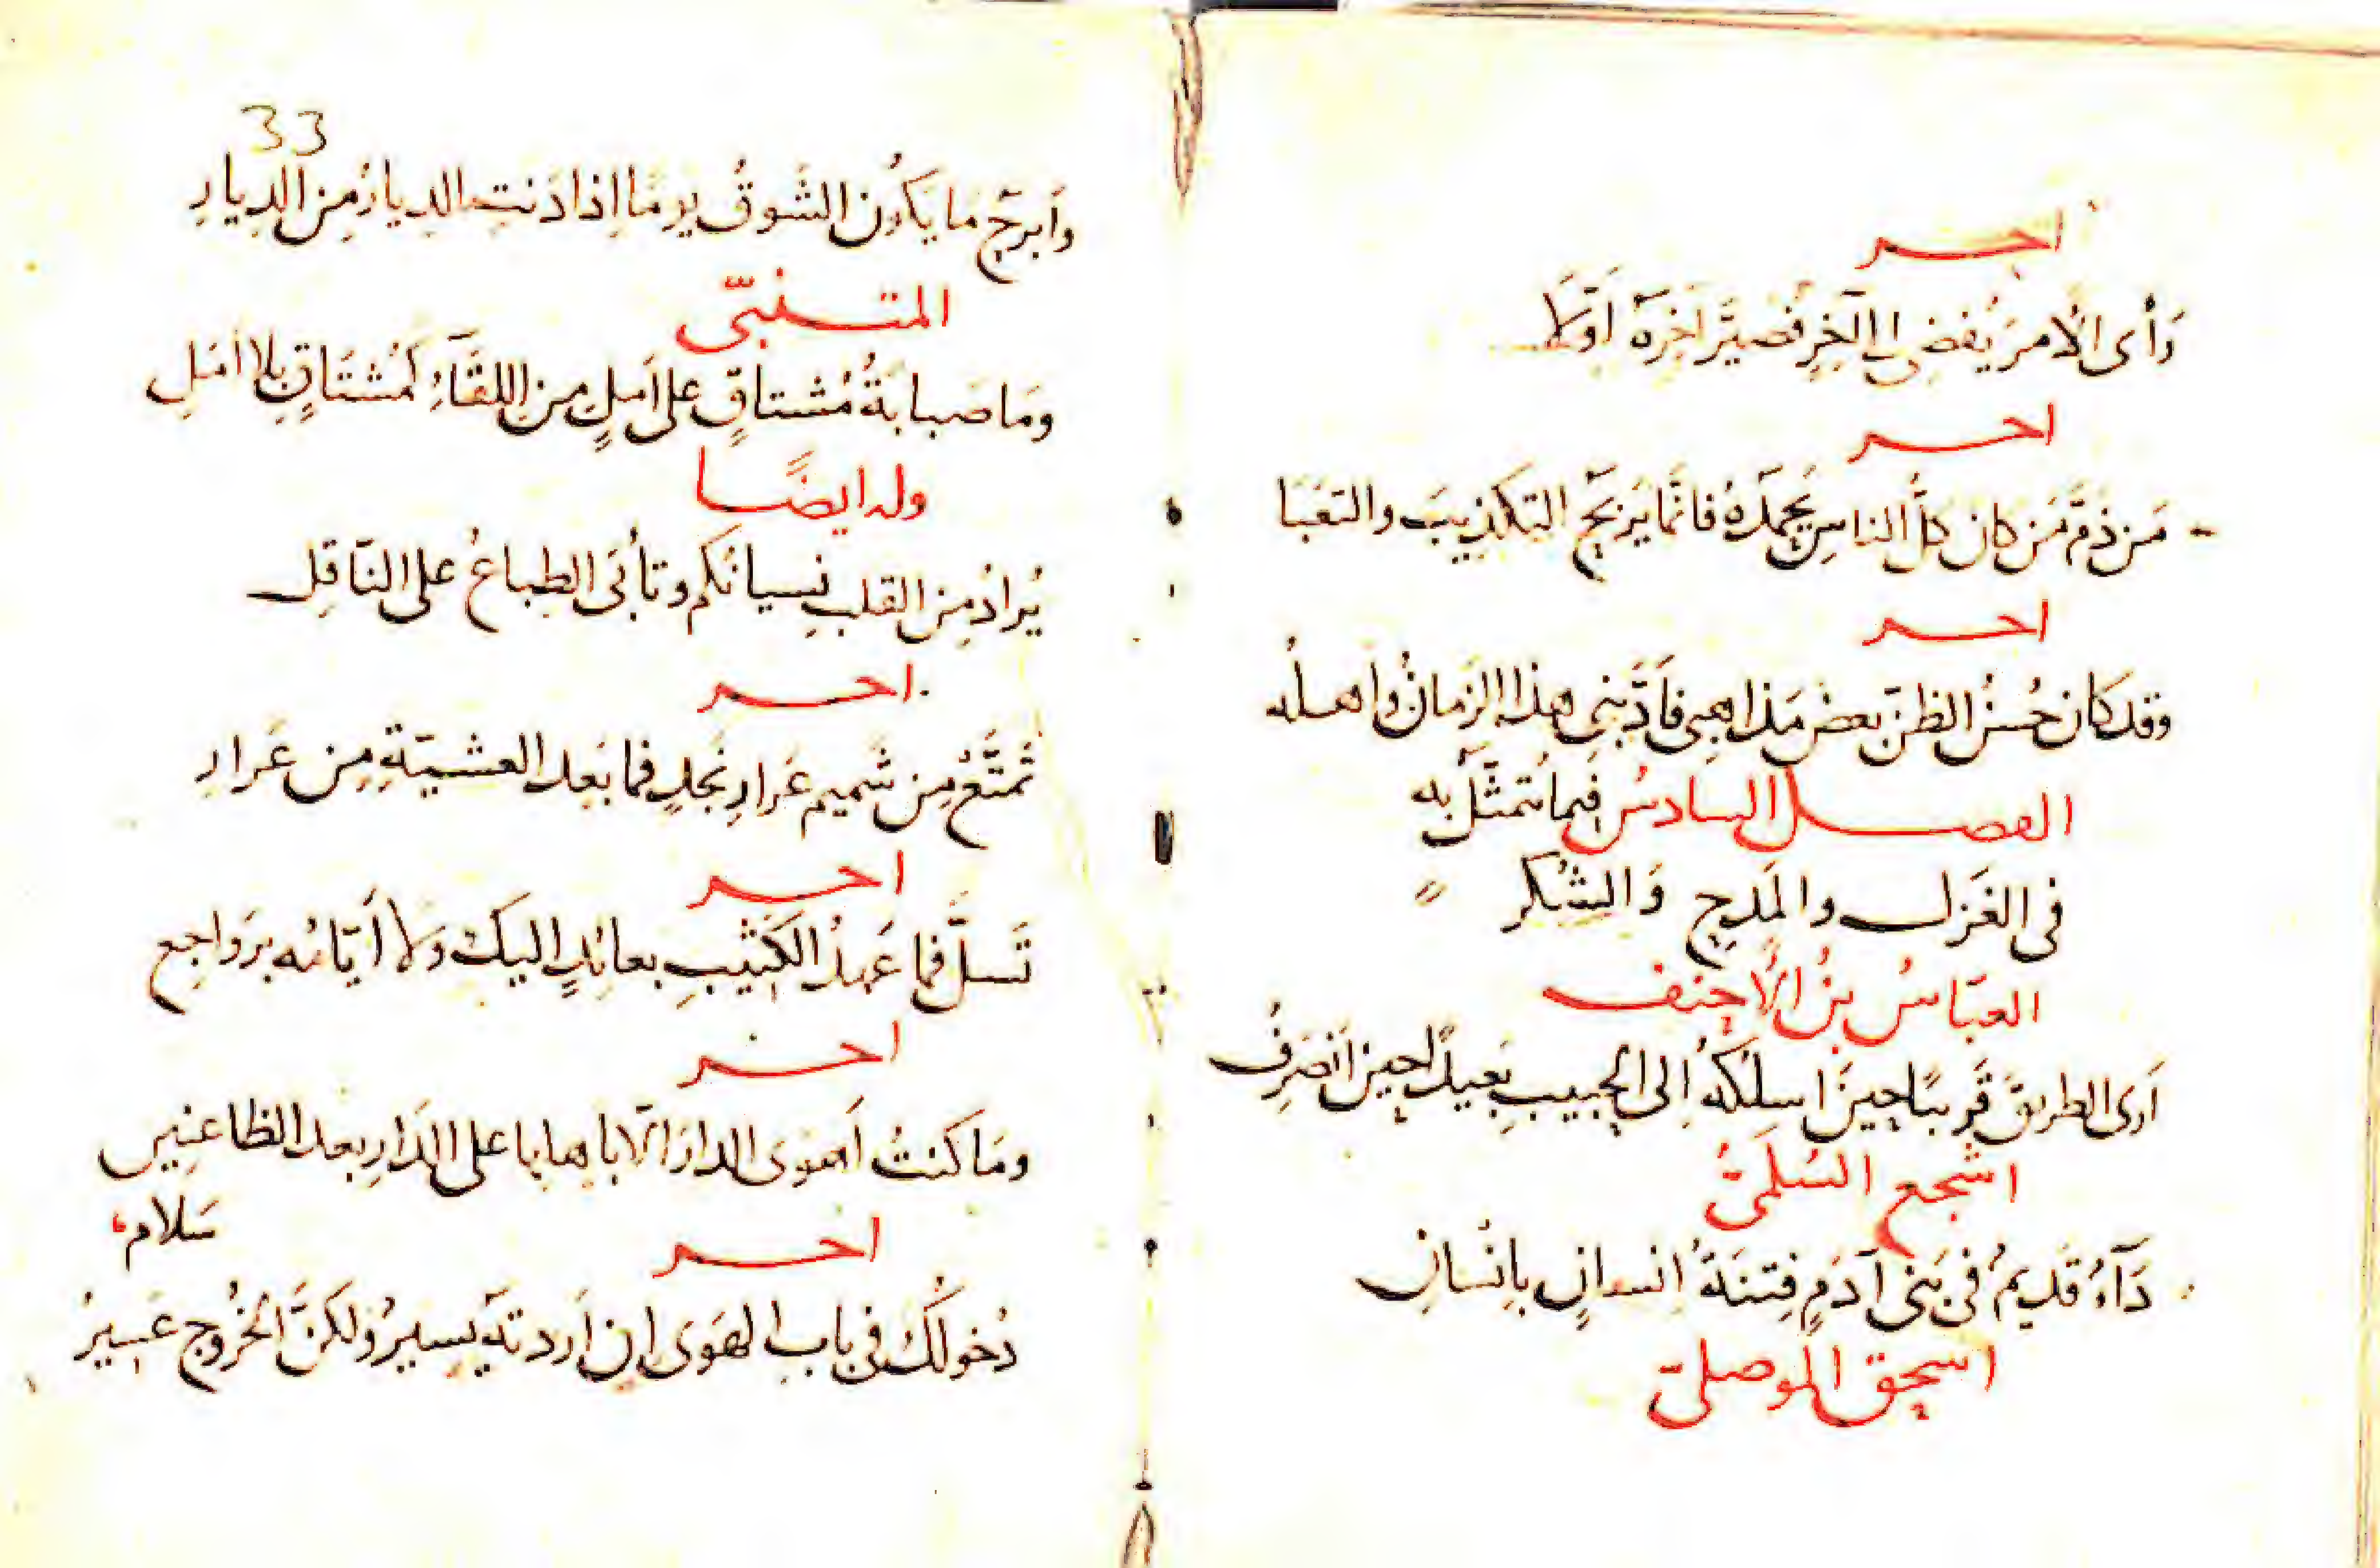 اخر
رَأى الأمرَ يُفضى الى آخِرٍ فصَيَّرَ آخِرَهُ أوّلا
اخر
مَن ذمَّ مَن كان كلُّ الناسِ يَحمَدُهُ فانّما يَربَحُ التكذيبَ والتعَبَا
اخر
وقد كان حُسنُ الظنّ بعضَ مَذاهبى فأدّبنى هذا الزمانُ وأهلُه
الفصل السادسُ فيما يُتمثّلُ به
فى الغَزل والمَدحِ وَالشُكر
العبّاسُ بنُ الأحنف
اَرى الطريقَ قَريبًا حينَ اسلكُهُ إلى الحبيبِ بَعيدًا حينَ انصَرِفُ
اشجع السُلَمىُّ
دَآءٌ قَديمٌ فى بَنى آدَمٍ فِتنَةُ انسانٍ بإنسانِ
اسحق الموصلىّ
33
وَأبرحُ مَا يَكُون الشَوقُ يومًا إذا دَنتِ الديارُ مِن الديارِ
المتنبّى
ومَا صَبابَةُ مُشتاقٍ على اَمَلٍ مِن اللقَآءِ كمُشتَاقٍ بلا أمَلِ
وله ايضًا
يُرادُ مِن القلبِ نِسيانُكم وتأبَى الطِباعُ على النّاقِلِ
اخر
تَمتَّعْ مِن شَميم عَرارِ نَجدٍ فما بَعد العَشيّةِ مِن عَرارِ
اخر
تَسلَّ فما عَهدُ الكَثيبِ بعائدٍ اليكَ وَلا أيّامُه برَواجع
اخر
ومَا كنتُ اَهوَى الدارَ الّا باهلها على الدَارِ بعد الظاعنين
سَلام
اخر
دُخولُكَ فى بابِ الهَوى إن اَردتَهُ يَسيرٌ ولكنَّ الخُرُوجَ عَسيرُ